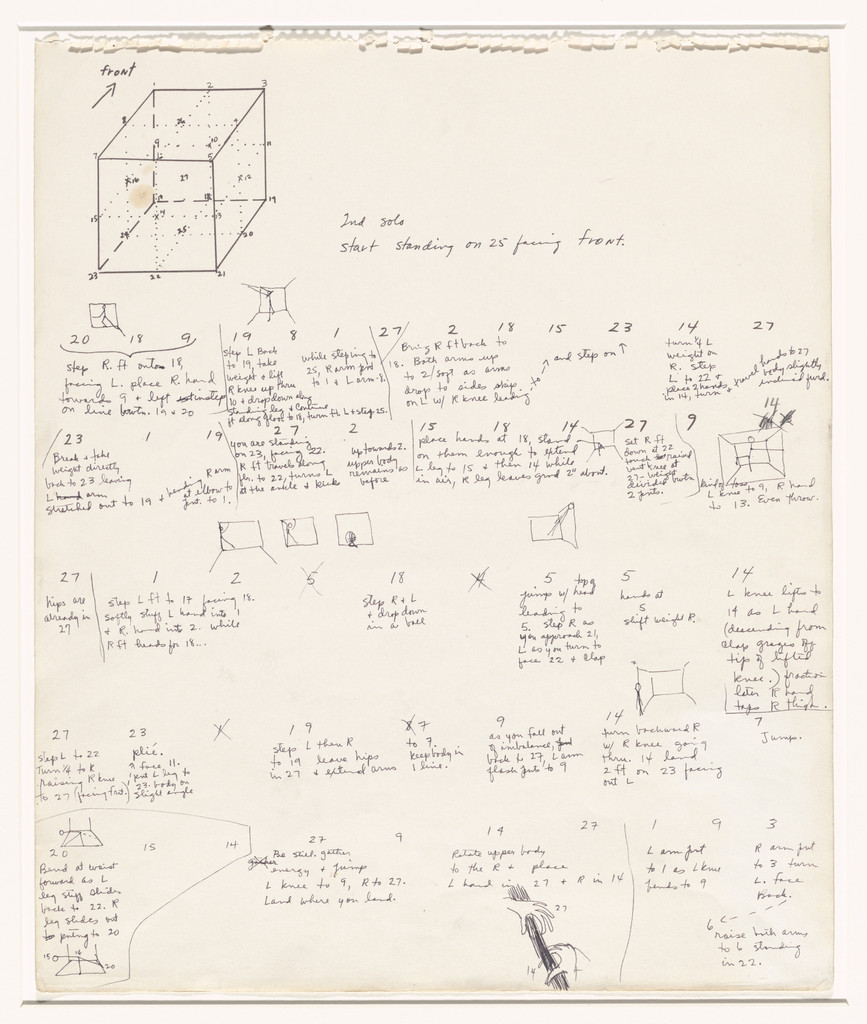 front
2
3
8
9
7
5
11
X16
27
X12
19
15
13
20
25
23
22
21
2nd solo
start standing on 25 facing front.
20 18 9
step R. ft onto 18,
facing L. place R. hand
towards 9 + left
on line betw. 19 + 20
19 8 1
step L Back
to 19, take
weight + lift
R knee up thru
10 + drop down along
standing leg + continue
ft along floor to 18, turn ft L + step 25.
while stepping to
25, R arm
to 1 + L arm
27 2 18 15 23
Bring R ft back to
18. Both arms up
to 2/ as arms
drop to sides skip
on L w/ R knee leading to
and step on
14 27
turn ¼ L
weight on
R. step
L to 22 +
place 2 hands
in 14, turn + travel hands to 27
body slightly
inclined fwd.
23 1 19
Break + take
weight directly
back to 23 leaving
L arm
stretched out to 19 + bending R arm
at elbow to
to 1.
27 2
you are standing
on 23, facing 22.
R ft travels along
flr. to 22, turns L
at the ankle + kicks
up towards 2.
upper body
remains as
before
15 18 14
place hands at 18, stand
on them enough to extend
L leg to 15 + then 14 while
in air, R leg leaves grnd 2" about.
27
set R ft
down at 22
touch raised
bent knee at
27 - weight
divided betw
2
9 14
L knee to 9, R hand
to 13. Even throw.
27
hips are
already in
27
1 2 5
step L ft to 17 facing 18.
softly stuff L hand into 1
+ R. hand into 2. while
R ft heads for 18...
18
step R + L
+ drop down
in a ball
4
5
jump w/ top of head
leading to
5. step R as
you approach 21,
L as you turn to
face 22 + clap
5
hands at
5
shift weight R.
14
L knee lifts to
14 as L hand
(descending from
clap grazes off
tip of lifted
knee.) fraction
later R hand
taps R thigh.
27
step L to 22
Turn ¼ to R
raising R knee
to 27 (facing frt.)
23
plié.
face, 11.
put L leg to
23. body on
slight angle
19
step L then R
to 19 leave hips
in 27 + extend arms
7
to 7.
keep body in
1 line.
9
as you fall out
of imbalance,
back to 27, L arm
flash juts to 9
14
turn backward R
w/ R knee going
thru. 14 land
2 ft on 23 facing
out L
7
Jump.
20 15 14
Bend at waist
forward as L
leg stiff slides
back to 22. R
leg slides out
to 20
15 14 20
27 9
Be still. gather
energy + jump
L knee to 9, R to 27.
Land where you land.
14 27
Rotate upper body
to the R + place
L hand in 27 + R in 14
27
14
1 9 3
L arm jut
to 1 as L knee
bends to 9
R arm jut
to 3 turn
L. face
Back.
6
raise both arms
to 6 standing
in 22.